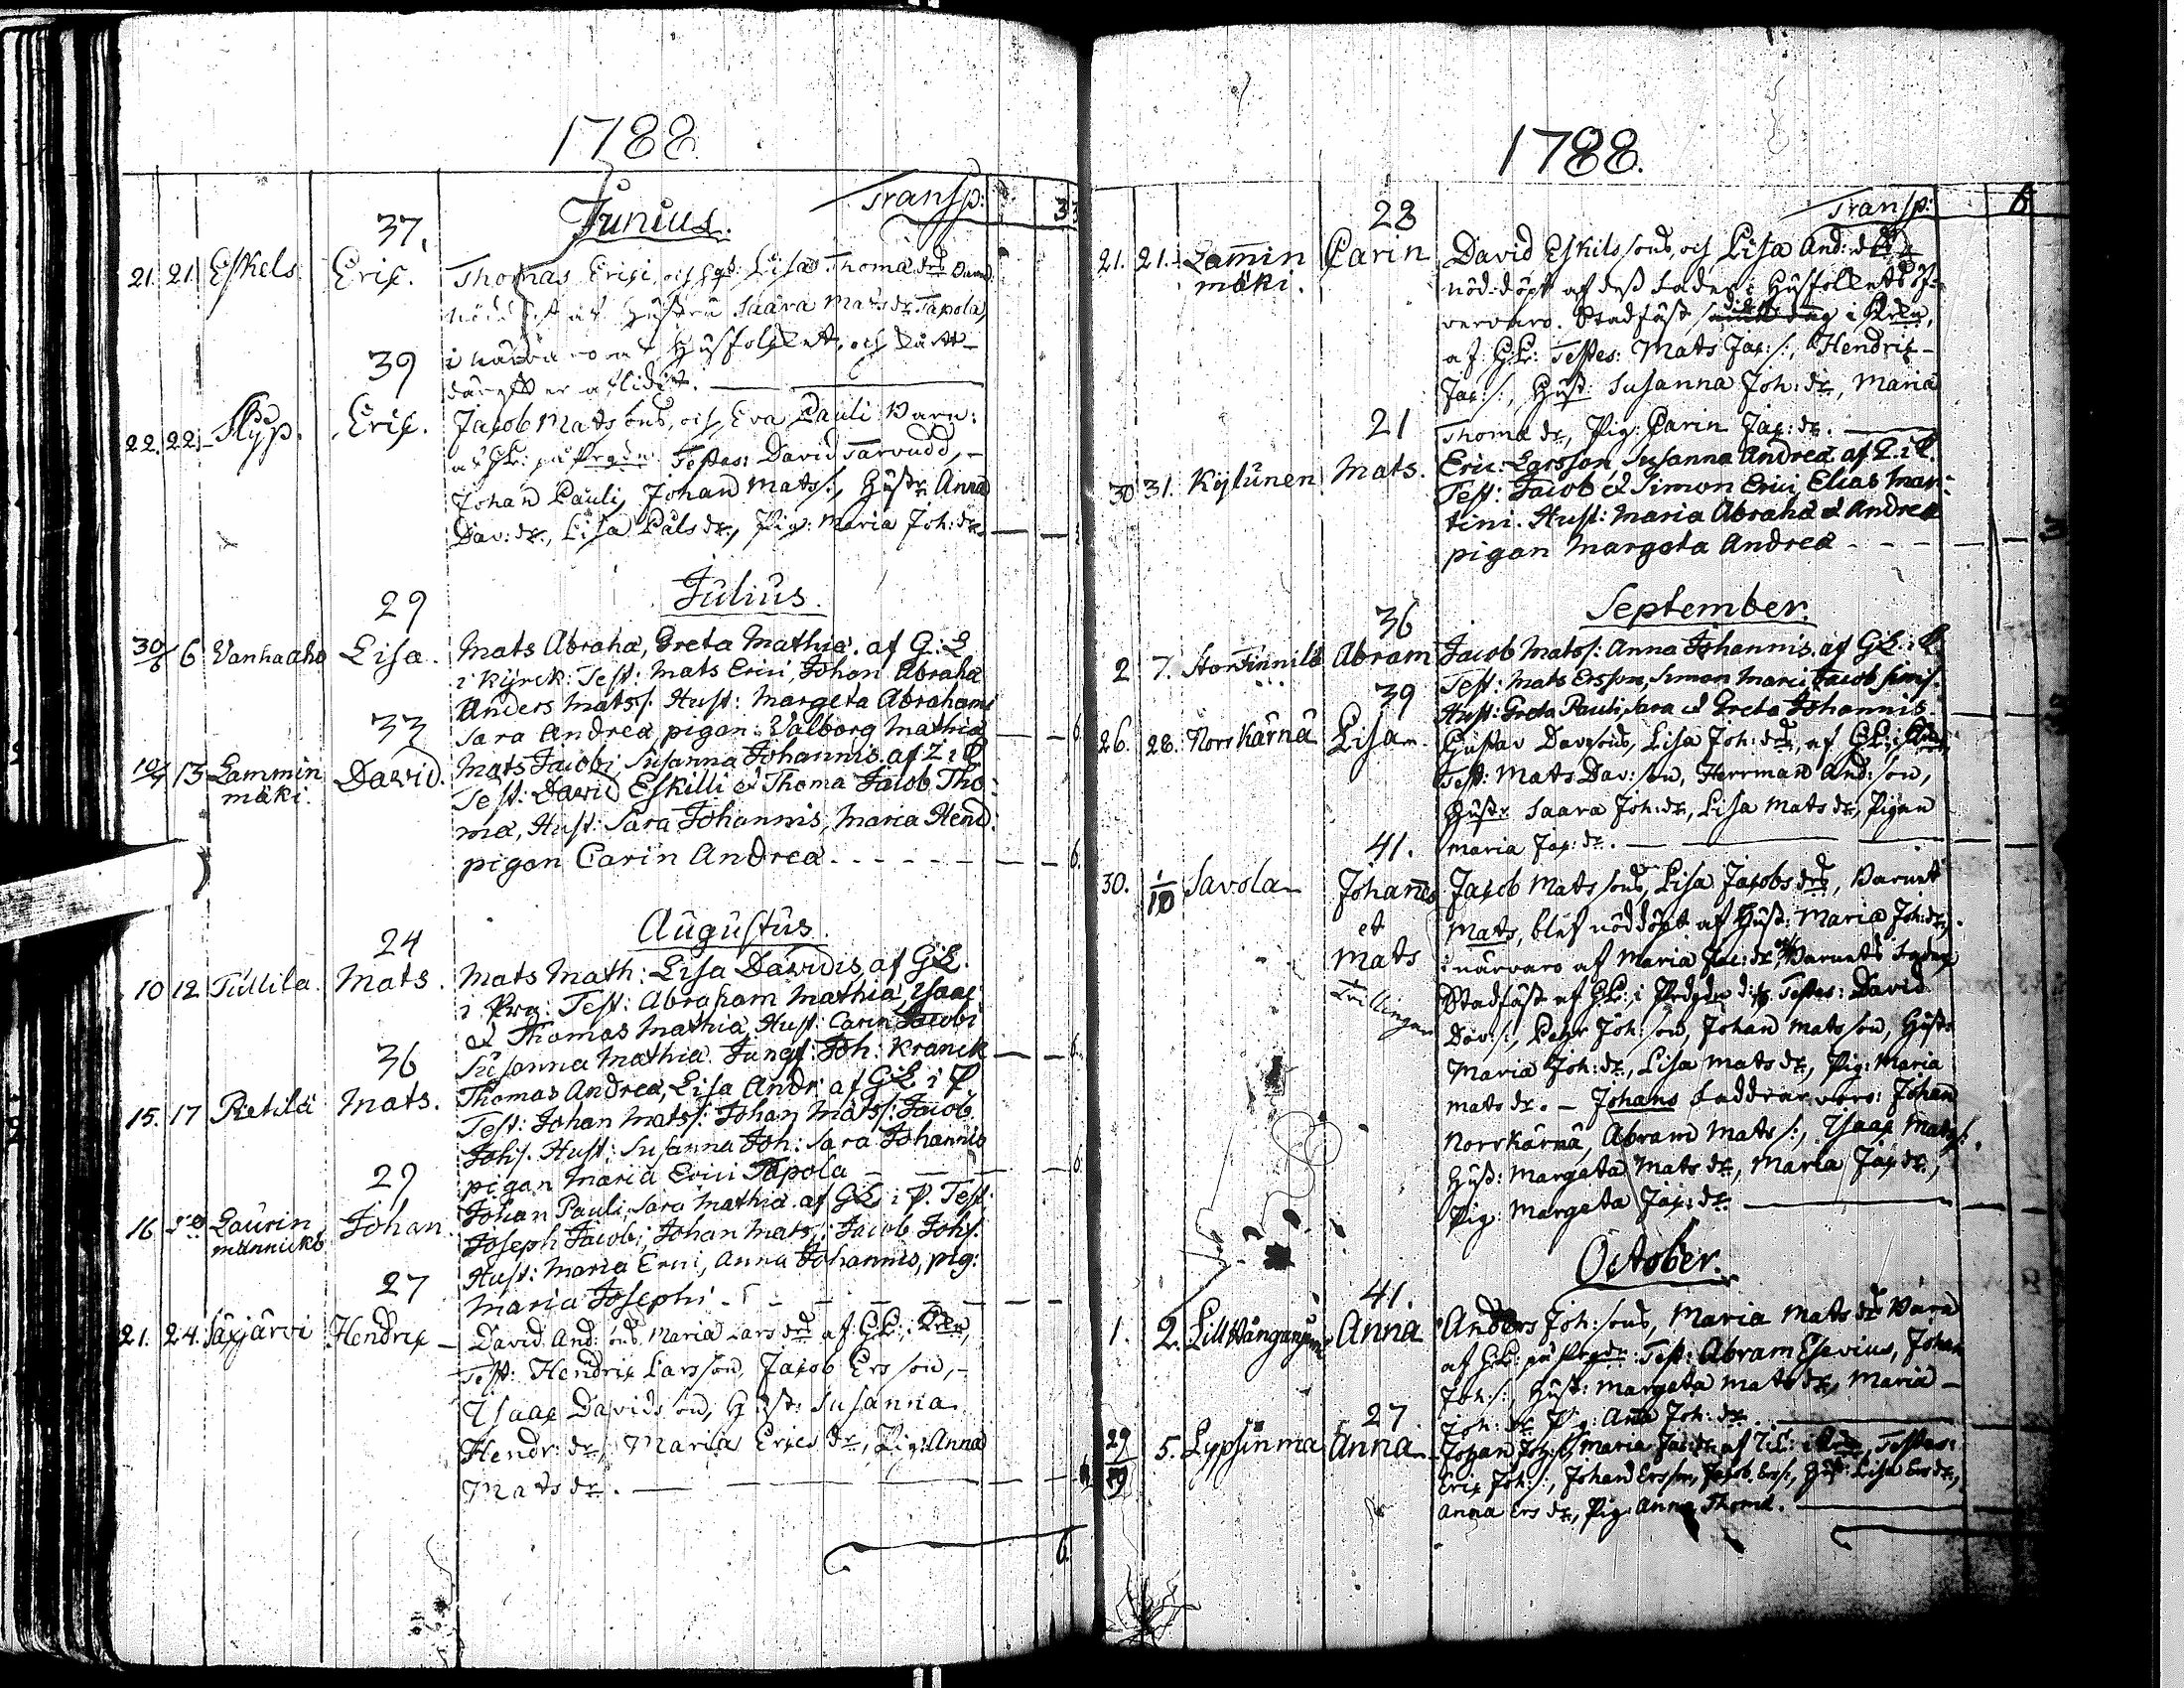 1788.
Transp:
37. Junius.
21. 21. Eskels Eric. Thomas Erici, och Lisa Thomæ dr Barn
nöddöpt af Hustru Saara Mats dr Tapola,
i närvaro af Husfolket, och
39 därefter aflidit.
22. 22. Flyp. Eric. Jacob Mats sons, och Eva Pauli Barn:
af GL: på Prgdn. Testes: David Tarvudd,
Johan Pauli, Johan Mats/:, Hustr Anna
Dav: dr., Lisa Påls dr., Pig: Maria Joh: dr.
Julius.
29
30/6 6 Vanhaaho Lisa. Mats Abrahæ, Greta Mathiæ. af G: L
i Kyrck: Test: Mats Erici, Johan Abrahæ
Anders Mats/. Hust: Margeta Abrahami
33 Sara Andreæ pigan: Valborg Mathiæ 6.
10/7 13 Lammin David. Mats Jacobi, Susanna Johannis. af Z i P
mäki. Test: David Eskilli & Thoma Jacob Tho:
mæ, Hust: Sara Johannis, Maria Hend:
pigan Carin Andreæ 6.
Augustus.
24
10 12 Tullila. Mats. Mats Math: Lisa Davidis, af G:L.
i Prg: Test: Abraham Mathiæ, Isaac
& Thomas Mathiæ, Hust: Carin Jacobi
36 Susanna Mathiæ. Jungf: Joh: Kranck
15. 17 Pietilä Mats. Thomas Andreæ, Lisa Andr: af G:L i P.
Test: Johan Mats/: Johan Mats/: Jacob
Joh/. Hust: Susanna Joh: Sara Johannis
29 pigan Maria Erici Tapola 6.
16 do Laurin Johan Johan Pauli, Sara Mathiæ. af GL i P. Test:
männickö Joseph Jacobi, Johan Mats/: Jacob Joh/.
Hust: Maria Erici, Anna Johannis, pig:
27 Maria Josephi
21. 24. Säxjärvi Hendric David And: sons, Maria Lars drs af GL:
Test: Hendric Larsson, Jacob Ersson,
Isaac Davidsson, Hust: Susanna
Hendr: dr, Maria Erics dr, Pig: Anna
Mats dr.
6.
1788.
Transp: 6
28
21. 21. Lamin Carin David Eskils sons, och Lisa And: drs
mäki. nöd:döpt af dess fader i Husfolkets öf-
vervaro. Stadfäst i Krkn,
af GL: Testes: Mats Jac:/:, Hendric
Jac:/:, Hust Susanna Joh: dr, Maria
21 Thomæ dr, Pig: Carin Jac: dr.
30 31. Kylünen Mats. Eric: Larsson, Susanna Andreæ af Z. i P.
Test: Jacob & Simon Erici, Elias Mar-
tini. Hust: Maria Abrahæ & Andreæ
pigan Margeta Andreæ 3
September.
36
2 7. Storfinnilä Abram Jacob Mats/: Anna Johannis. af GL: i P
Test: Mats Ersson, Simon Marci, Jacob Sim/.
39 Hust: Greta Pauli, Sara & Greta Johannis
26. 28. Norrkärnä Lisa. Gustav Davsons, Lisa Joh: drs, af GL: i
Test: Mats Dav: son, Herrman And: son,
Hustr Saara Joh: dr, Lisa Mats dr, Pigan
41. Maria Jac: dr.
30. 1/10 Savola Johannes Jacob Mats sons, Lisa Jacobs drs, Barnet
et Mats, blef nöddöpt af Hust: Maria Joh: dr,
Mats i närvaro af Maria Jac: dr, Barnets
Tvillingar Stadfäst af GL: i Testes: David
Dav:/:, Pehr Joh: son, Johan Mats son, Hustr
Maria Joh: dr., Lisa Mats dr, Pig: Maria
Mats dr. – Johans faddrar voro: Johan
Norrkärnä, Abram Mats/:, Isaac Mats/:
Hust: Margeta Mats dr, Maria Jac: dr,
Pig: Margeta Jac: dr
October.
41.
1. 2. Lill Anna Anders Joh: sons, Maria Mats drs Barn
af GL: på Prgdn: Test: Abram Johan
Joh:/:, Hust: Margeta Mats dr, Maria
27. Joh: dr, Pig: Anna Joh: dr
29/9 5. Lypsinma Anna Johan Maria Jac: dr af Testes:
Eric Joh:/:, Johan Ersson, Jacob Ers/:, Hust Lisa Ers dr,
Anna Ers dr, Pig: Anna Thomæ.